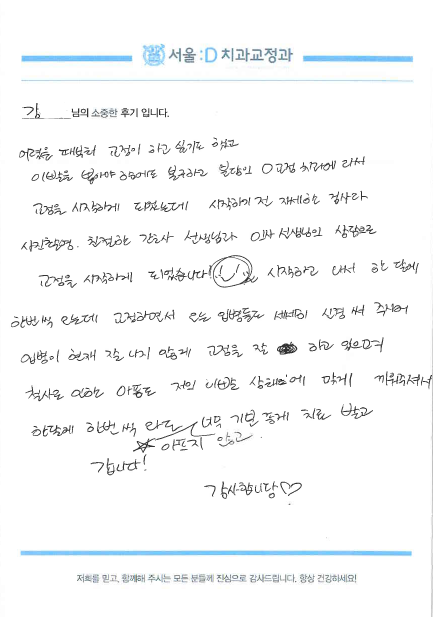 서울:D 치과교정과
강 님의 소중한 후기 입니다.
어렸을 때부터 교정이 하고 싶기도 했고
이빨을 뽑아야 함에도 불구하고 분당인 교정 치과에 와서
교정을 시작하게 되었는데 시작하기 전 자세한 검사와
사진촬영. 친절한 간호사 선생님과 의사 선생님의 상담으로
교정을 시작하게 되었습니다! 시작하고 나서 한 달에
한번씩 오는데 교정하면서 오는 입병들도 세세히 신경 써 주시어
입병이 현재 잘 나지 않게 교정을 잘 하고 있으며
철사로 인한 아픔도 저의 이빨 상태에 맞게 끼워주셔서
한달에 한번씩 와도 너무 기분 좋게 치료 받고
아프지 않고
갑니다!
감사합니당♡
저희를 믿고, 함께해 주시는 모든 분들께 진심으로 감사드립니다. 항상 건강하세요!